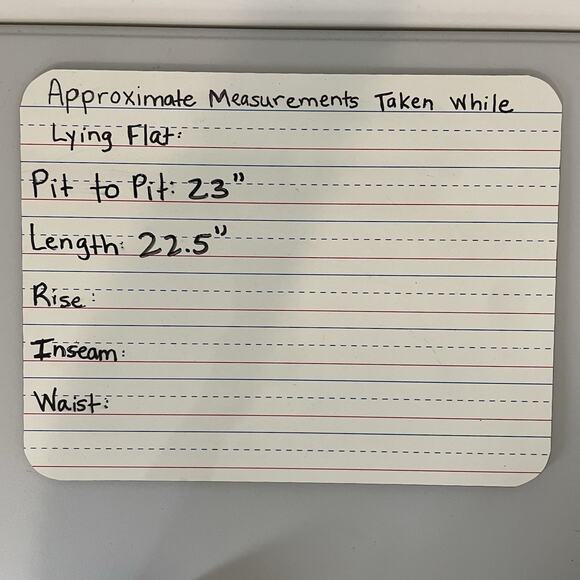 Approximate Measurements Taken While
Lying Flat:
Pit to Pit: 23"
Length: 22.5"
Rise:
Inseam:
Waist: